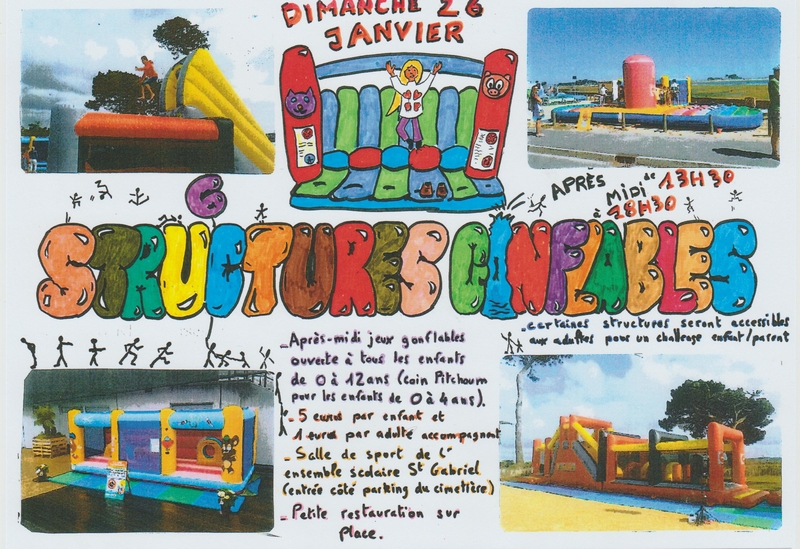 DIMANCHE 26
JANVIER
APRÈS
MIDI de 13H30
à 18H30
6
STRUCTURES GONFLABLES
- certaines structures seront accessibles
aux adultes pour un challenge enfant/parent
- Après-midi jeux gonflables
ouverte à tous les enfants
de 0 à 12 ans (coin Pitchoum
pour les enfants de 0 à 4 ans).
- 5 euros par enfant et
1 euros par adulte accompagnant
- Salle de sport de l'
ensemble scolaire St Gabriel
(entrée côté parking du cimetière)
- Petite restauration sur
place.